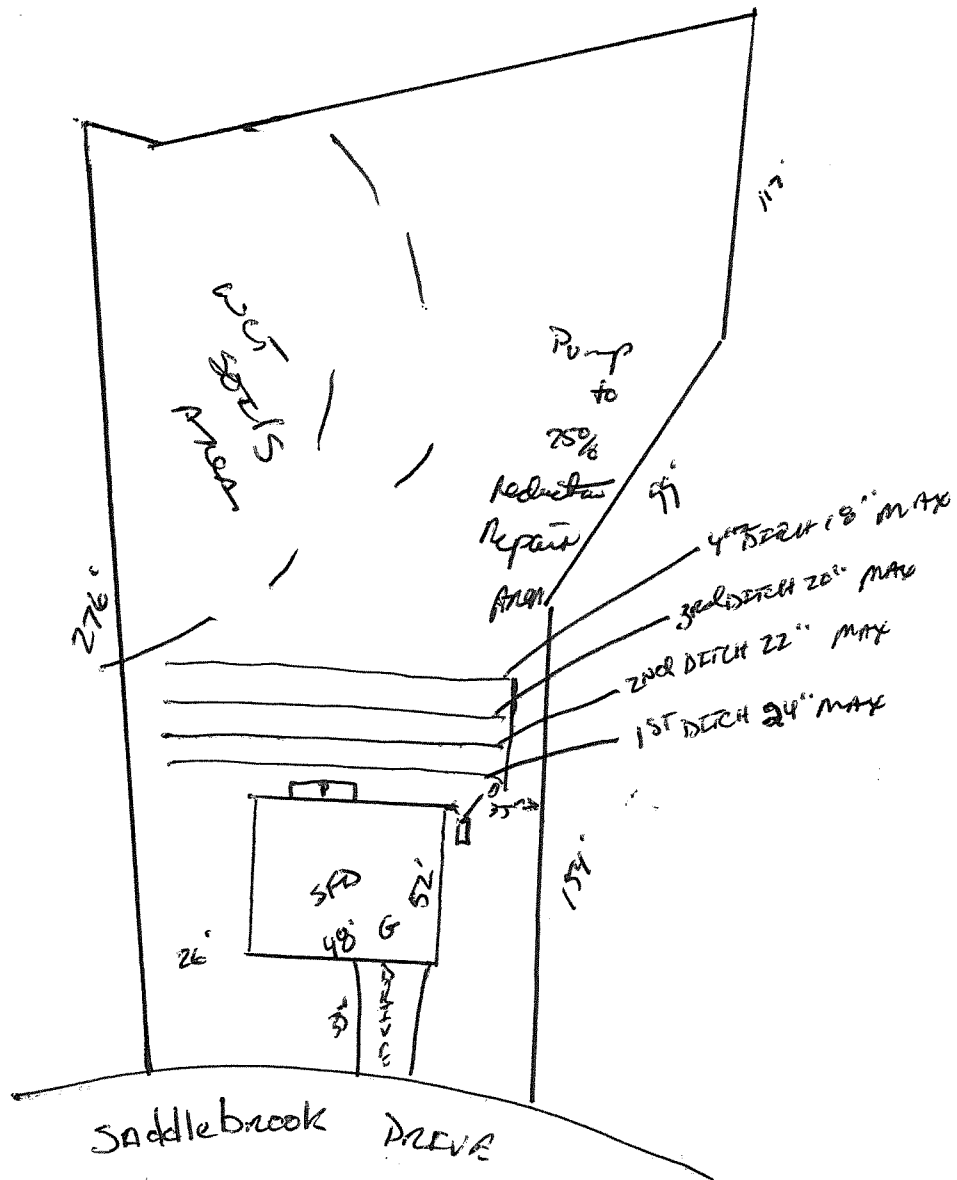 117'
WET
SOILS
AREA
Pump
to
25%
Reduction
Repair
Area
99'
4TH DITCH 18" MAX
3rd DITCH 20" MAX
2Nd DITCH 22" MAX
1ST DITCH 24" MAX
276'
P
SFD
52'
48'
G
26'
154'
DRIVE
SAddlebrook DRIVE